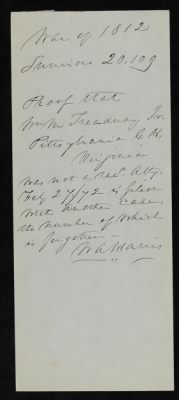 War of 1812
Survivors 20.109
Proof that
Wm M. Treadway Jr.
Pittsylvania C.H.
Virginia
was not a rec. Atty.
Feby 27/72 is filed
with another case
the number of which
is forgotten
Harris